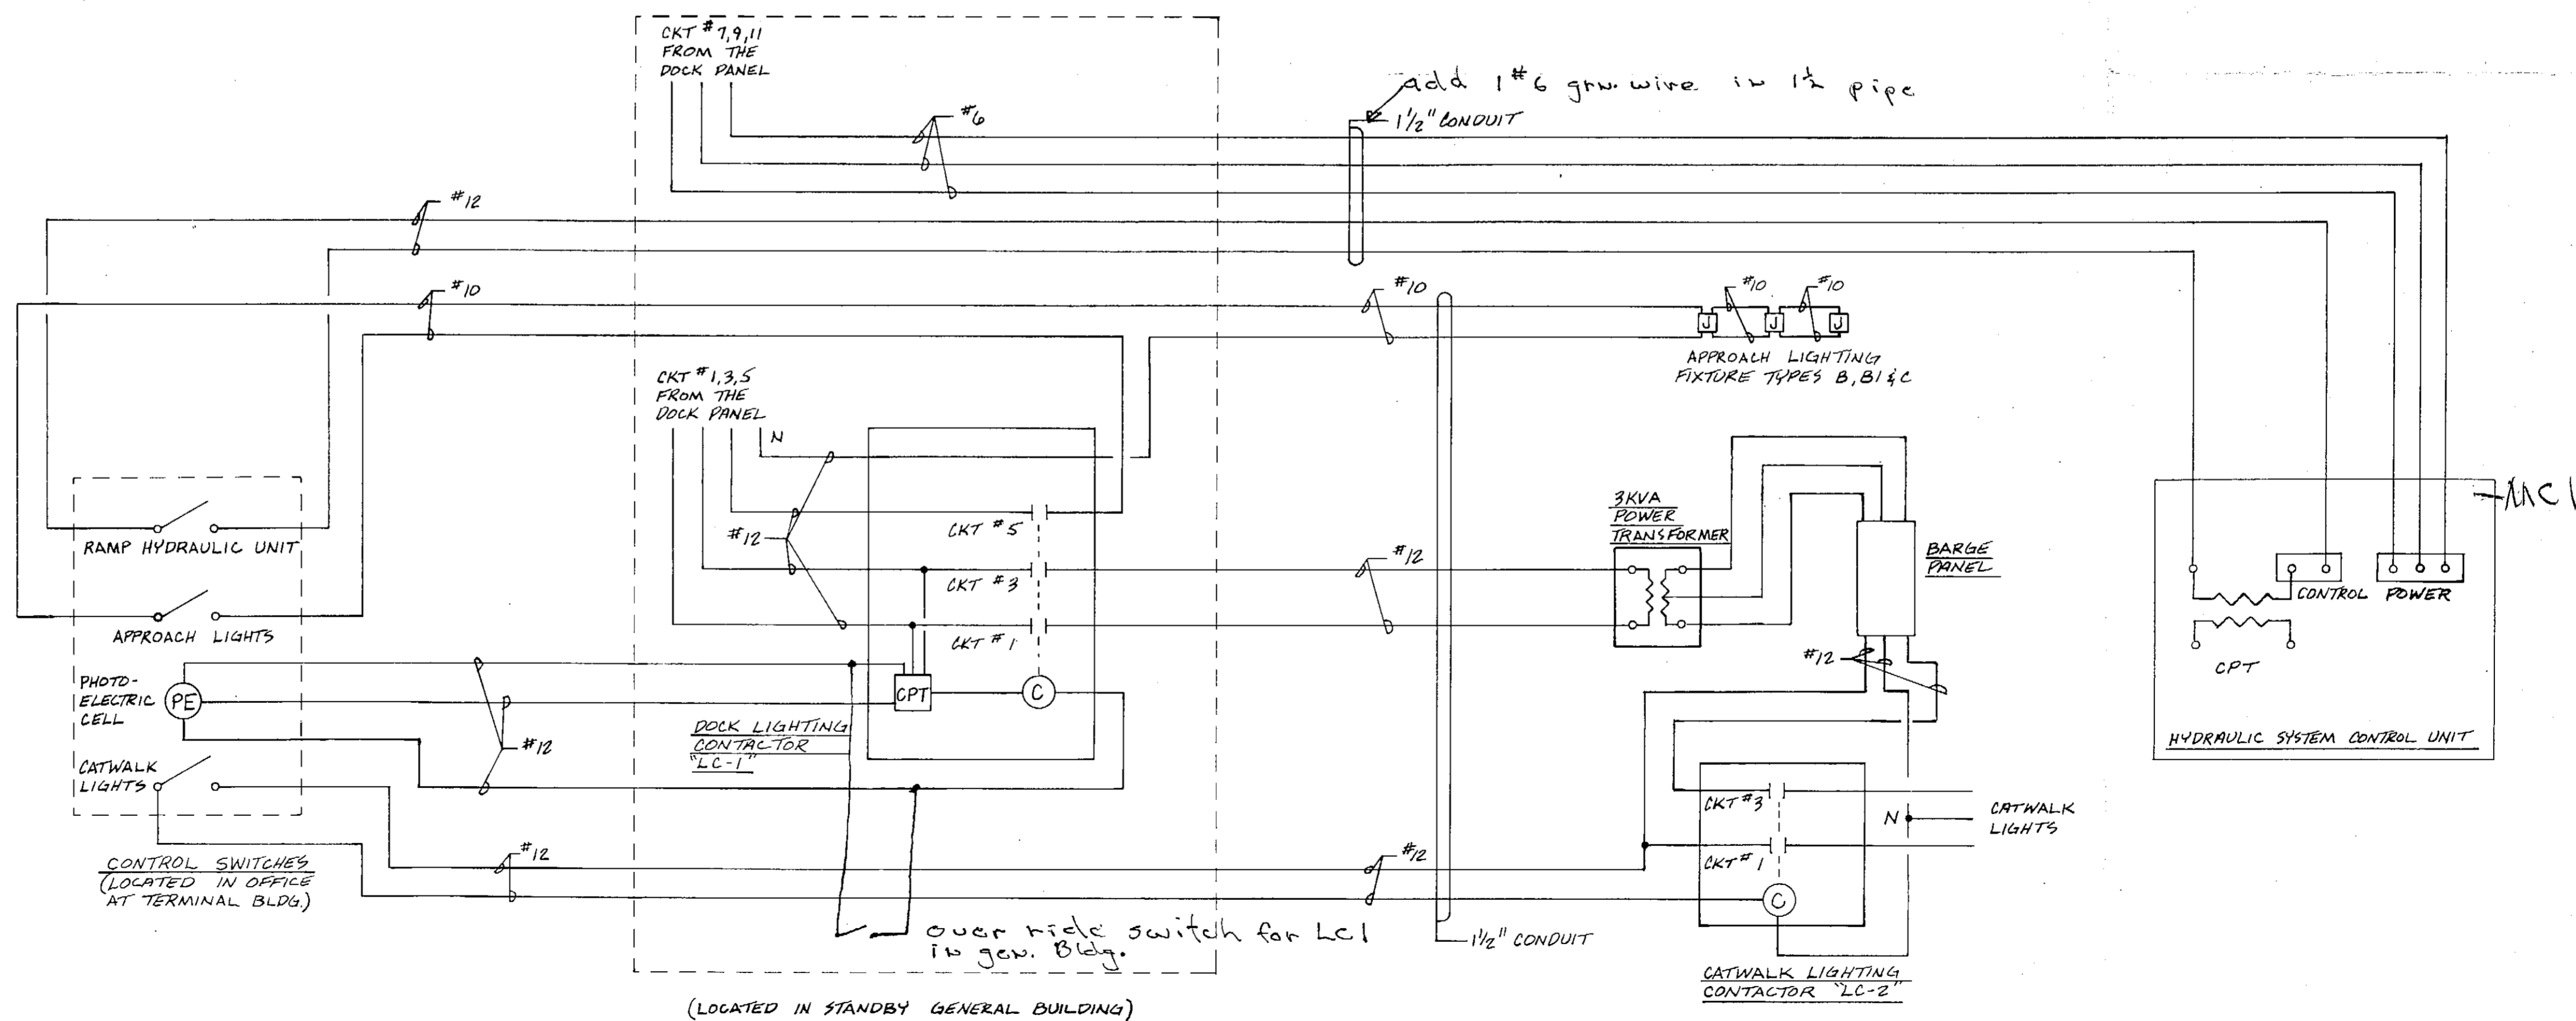 CKT #7,9,11
FROM THE
DOCK PANEL
add 1 #6 grn. wire in 1½ pipe
1½" CONDUIT
#6
#12
#10
#10
#10
#10
J
J
J
APPROACH LIGHTING
FIXTURE TYPES B, B1 & C
CKT #1,3,5
FROM THE
DOCK PANEL
N
#12
CKT #5
CKT #3
CKT #1
CPT
C
DOCK LIGHTING
CONTACTOR
"LC-1"
RAMP HYDRAULIC UNIT
APPROACH LIGHTS
PHOTO-
ELECTRIC
CELL
PE
CATWALK
LIGHTS
#12
CONTROL SWITCHES
(LOCATED IN OFFICE
AT TERMINAL BLDG.)
#12
#12
#12
over ride switch for LC1
in gen. Bldg.
1½" CONDUIT
(LOCATED IN STANDBY GENERAL BUILDING)
3KVA
POWER
TRANSFORMER
BARGE
PANEL
#12
CKT #3
CKT #1
C
N
CATWALK
LIGHTS
CATWALK LIGHTING
CONTACTOR "LC-2"
MC1
CONTROL
POWER
CPT
HYDRAULIC SYSTEM CONTROL UNIT